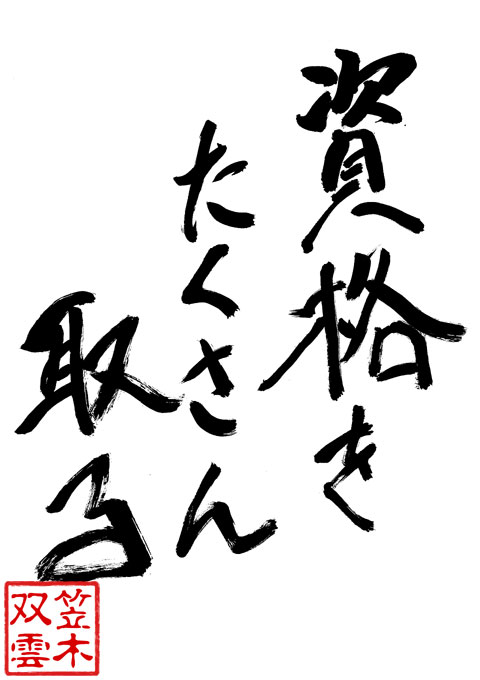 資格を
たくさん
取る
笠木
双雲